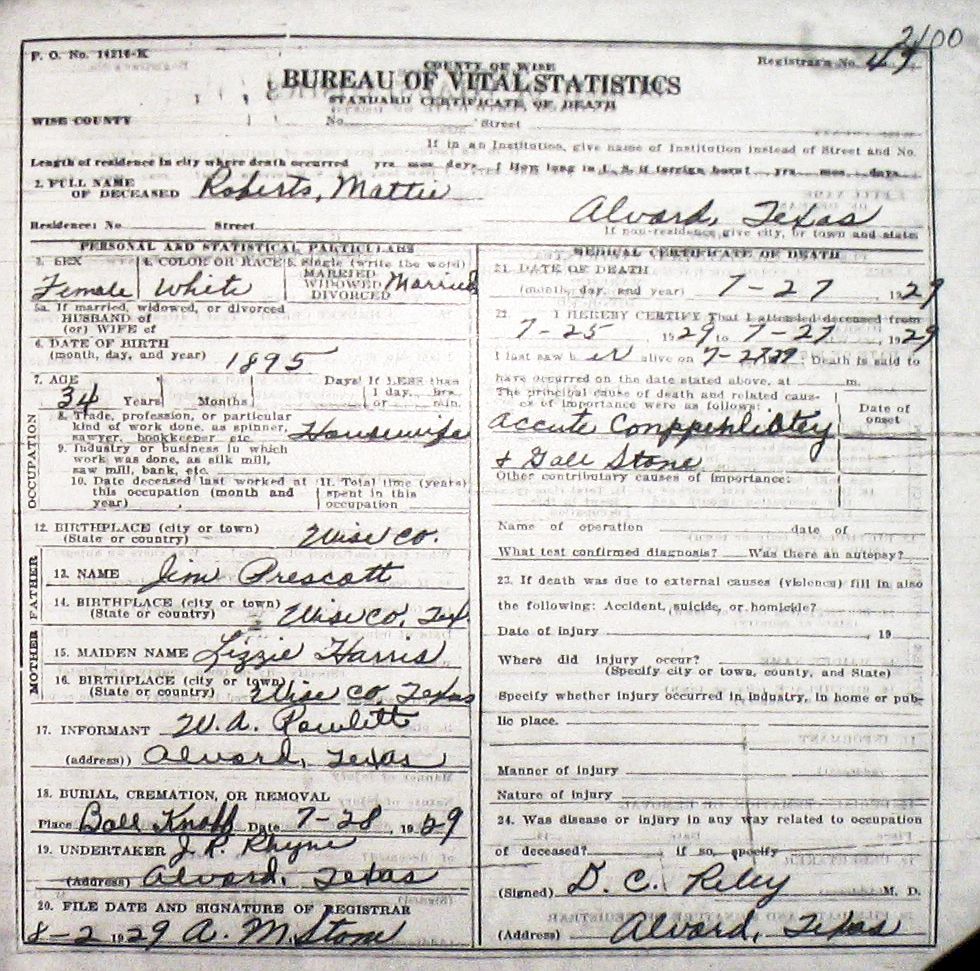 2100
F. O. No. 14216-K
Registrar's No. 49
COUNTY OF WISE
BUREAU OF VITAL STATISTICS
STANDARD CERTIFICATE OF DEATH
WISE COUNTY
No. Street
If in an Institution, give name of Institution instead of Street and No.
Length of residence in city where death occurred yrs mos days. How long in U. S. if foreign born? yrs mos days
2. FULL NAME OF DECEASED Roberts, Mattie
Residence: No Street
Alvord, Texas
If non-residence give city, or town and state
PERSONAL AND STATISTICAL PARTICULARS
3. SEX
Female
4. COLOR OR RACE
White
5. Single (write the word)
MARRIED
WIDOWED
DIVORCED
Married
5a. If married, widowed, or divorced
HUSBAND of
(or) WIFE of
6. DATE OF BIRTH
(month, day, and year) 1895
7. AGE
34 Years Months Days
If LESS than
1 day, hrs.
or min.
OCCUPATION
8. Trade, profession, or particular
kind of work done, as spinner,
sawyer, bookkeeper etc. Housewife
9. Industry or business in which
work was done, as silk mill,
saw mill, bank, etc.
10. Date deceased last worked at
this occupation (month and
year)
11. Total time (years)
spent in this
occupation
12. BIRTHPLACE (city or town)
(State or country) Wise Co.
FATHER
13. NAME Jim Prescott
14. BIRTHPLACE (city or town)
(State or country) Wise Co, Tex.
MOTHER
15. MAIDEN NAME Lizzie Harris
16. BIRTHPLACE (city or town)
(State or country) Wise Co, Texas
17. INFORMANT W. A. Rowlett
(address)) Alvord, Texas
18. BURIAL, CREMATION, OR REMOVAL
Place Ball Knoff Date 7-28, 1929
19. UNDERTAKER J. P. Rhyne
(Address) Alvord, Texas
20. FILE DATE AND SIGNATURE OF REGISTRAR
8-2 1929 A. M. Stone
MEDICAL CERTIFICATE OF DEATH
21. DATE OF DEATH
(month, day, and year) 7-27, 1929
22. I HEREBY CERTIFY That I attended deceased from
7-25 1929 to 7-27, 1929
I last saw h er alive on 7-2729: Death is said to
have occurred on the date stated above, at m.
The principal cause of death and related caus-
es of importance were as follows:
Date of
onset
Accute
& Gall Stone
Other contributary causes of importance:
Name of operation date of
What test confirmed diagnosis? Was there an autopsy?
23. If death was due to external causes (violence) fill in also
the following: Accident, suicide, or homicide?
Date of injury , 19
Where did injury occur?
(Specify city or town, county, and State)
Specify whether injury occurred in industry, in home or pub-
lic place.
Manner of injury
Nature of injury
24. Was disease or injury in any way related to occupation
of deceased? if so, specify
(Signed) D. C. Riley M. D.
(Address) Alvord, Texas